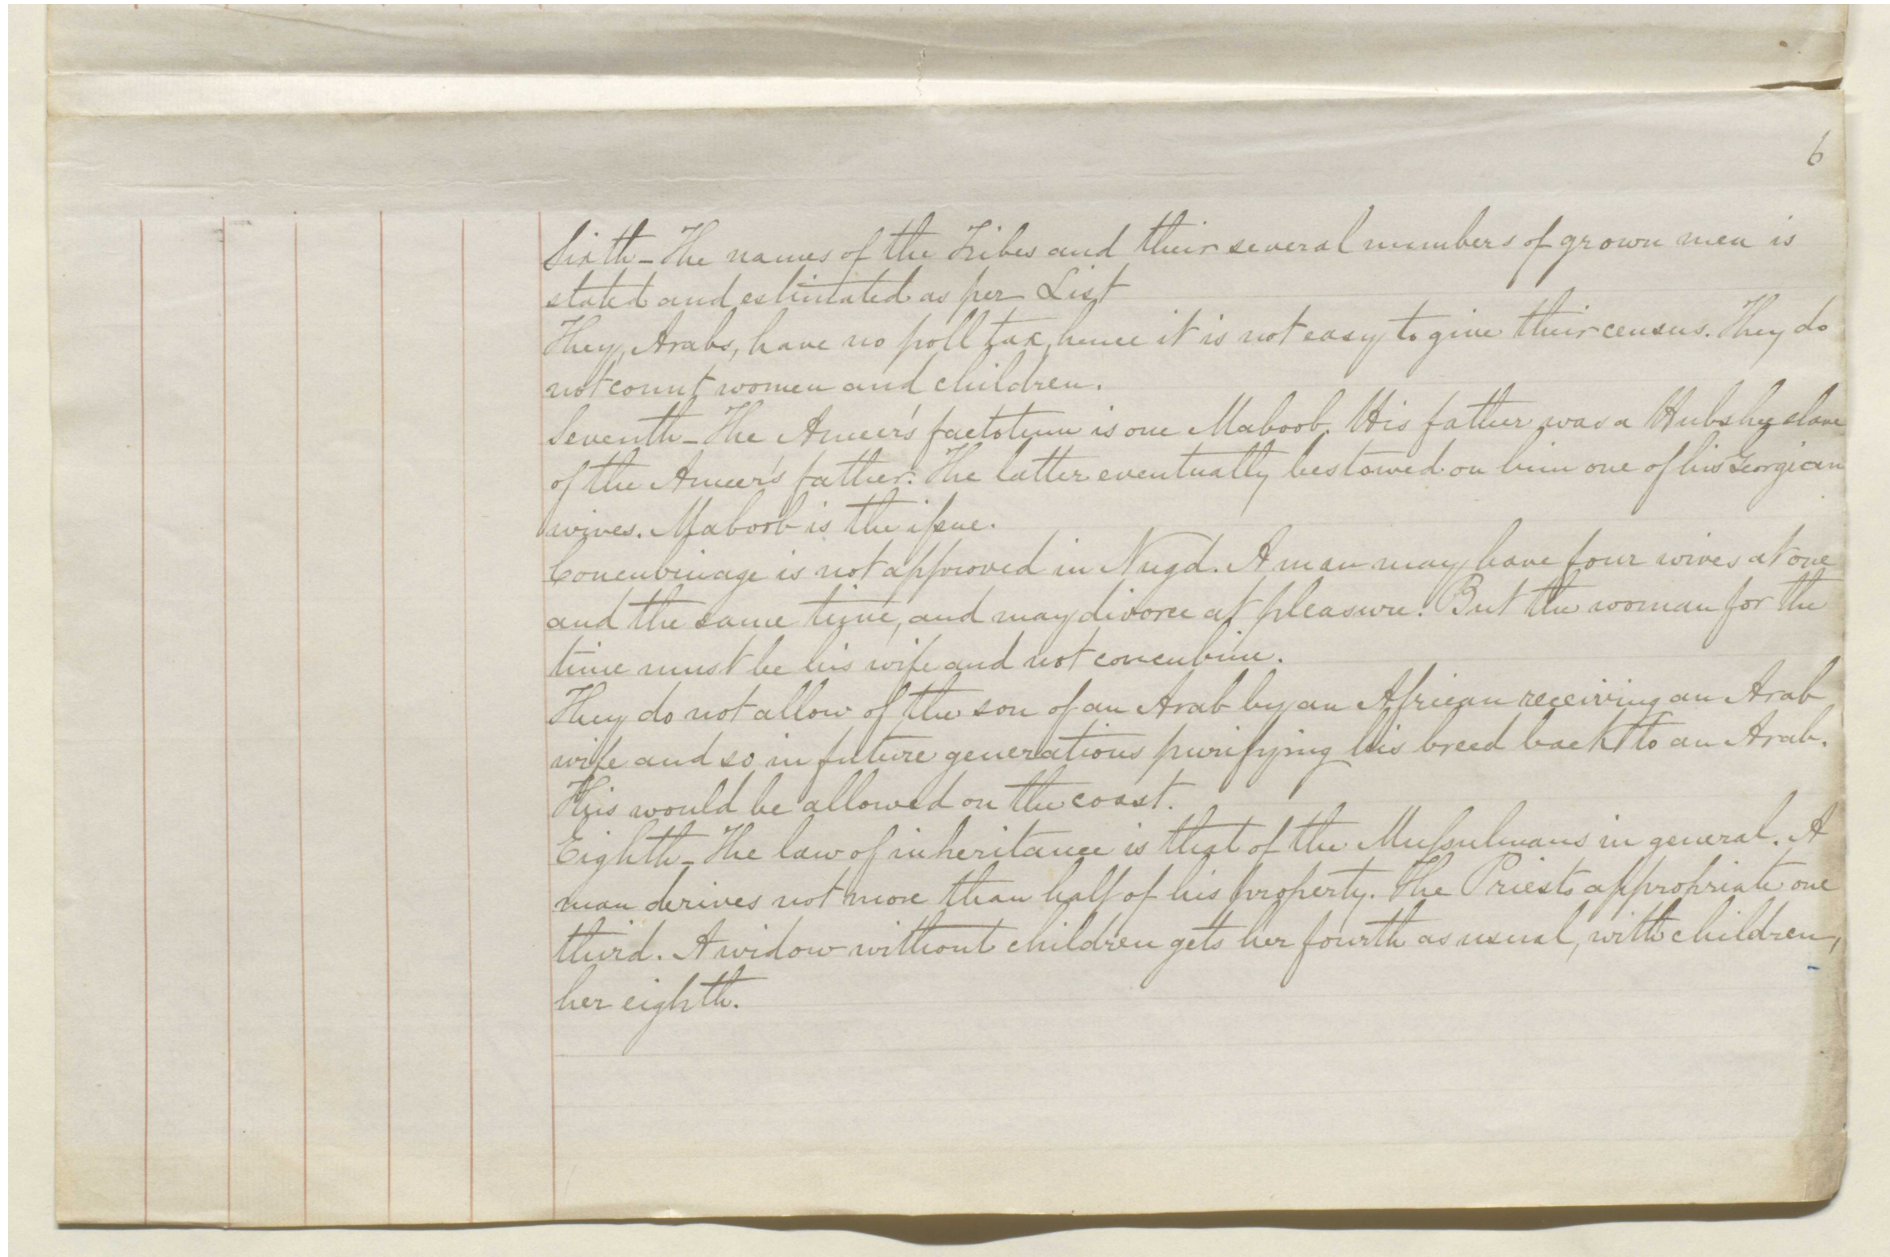 6
Sixth - The names of the Tribes and their several numbers of grown men is
stated and estimated as per List
They, Arabs, have no poll tax, hence it is not easy to give their census. They do
not count women and children.
Seventh - The Ameer's factotum is one Maboob. His father was a Hubshy slave
of the Ameer's father. The latter eventually bestowed on him one of his Georgian
wives. Maboob is the issue.
Concubinage is not approved in Nugd. A man may have four wives at one
and the same time, and may divorce at pleasure. But the woman for the
time must be his wife and not concubine.
They do not allow of the son of an Arab by an African receiving an Arab
wife and so in future generations purifying his breed back to an Arab.
This would be allowed on the coast.
Eighth - The law of inheritance is that of the Mussulmans in general. A
man derives not more than half of his property. The Priests appropriate one
third. A widow without children gets her fourth as usual, with children,
her eighth.